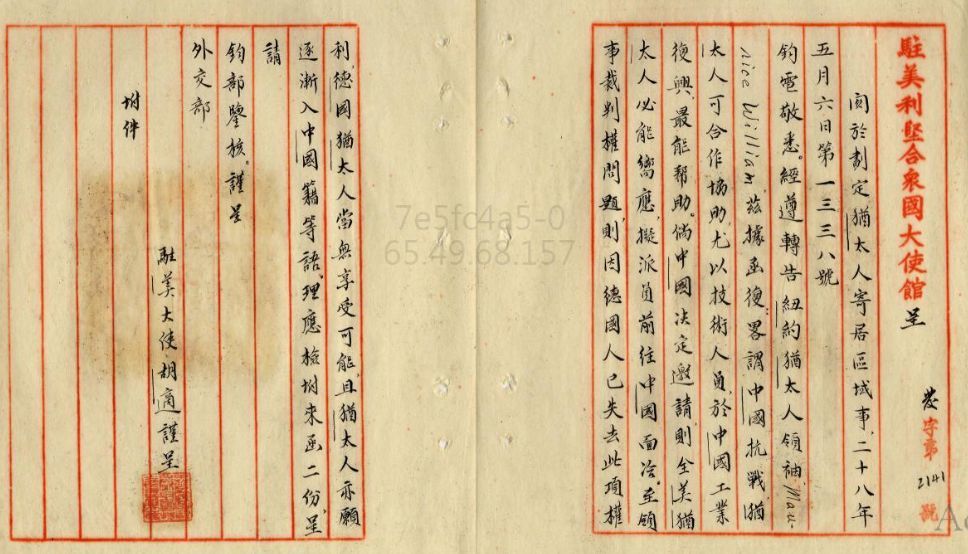 駐美利堅合衆國大使館呈
字第2141號
関於劃定猶太人寄居區域事,二十八年
五月六日第一三三八號
鈞電敬悉。經遵轉告紐約猶太人領袖 Mau-
rice William,茲據函復畧謂中國抗戰,猶
太人可合作協助,尤以技術人員,於中國工業
復興,最能帮助。倘中國决定邀請,則全美猶
太人必能嚮應,擬派員前往中國面洽。至領
事裁判權問題,則因德國人已失去此項權
利,德國猶太人當無享受可能,且猶太人亦願
逐漸入中國籍等語。理應檢附來函二份,呈
請
鈞部鑒核。謹呈
外交部
附件
駐美大使胡適謹呈
7e5fc4a5-0
65.49.68.157